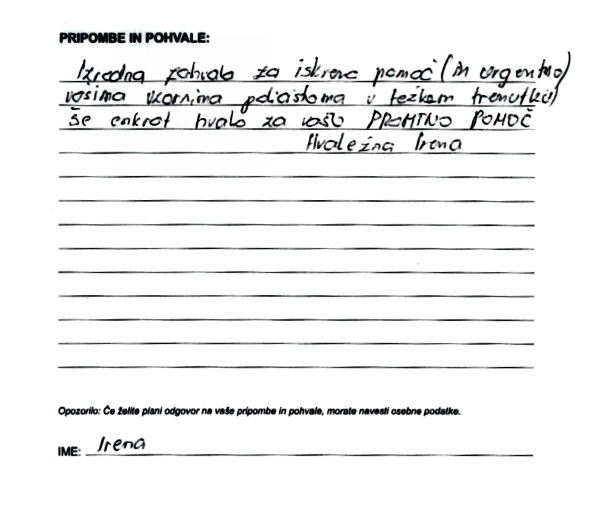 PRIPOMBE IN POHVALE:
Izredna zahvala za iskreno pomoč (in urgentno)
vašima policistoma v težkem trenutku)
še enkrat hvala za vašo PROMTNO POMOČ
Hvaležna Irena
Opozorilo: Če želite pisni odgovor na vaše pripombe in pohvale, morate navesti osebne podatke.
IME: Irena